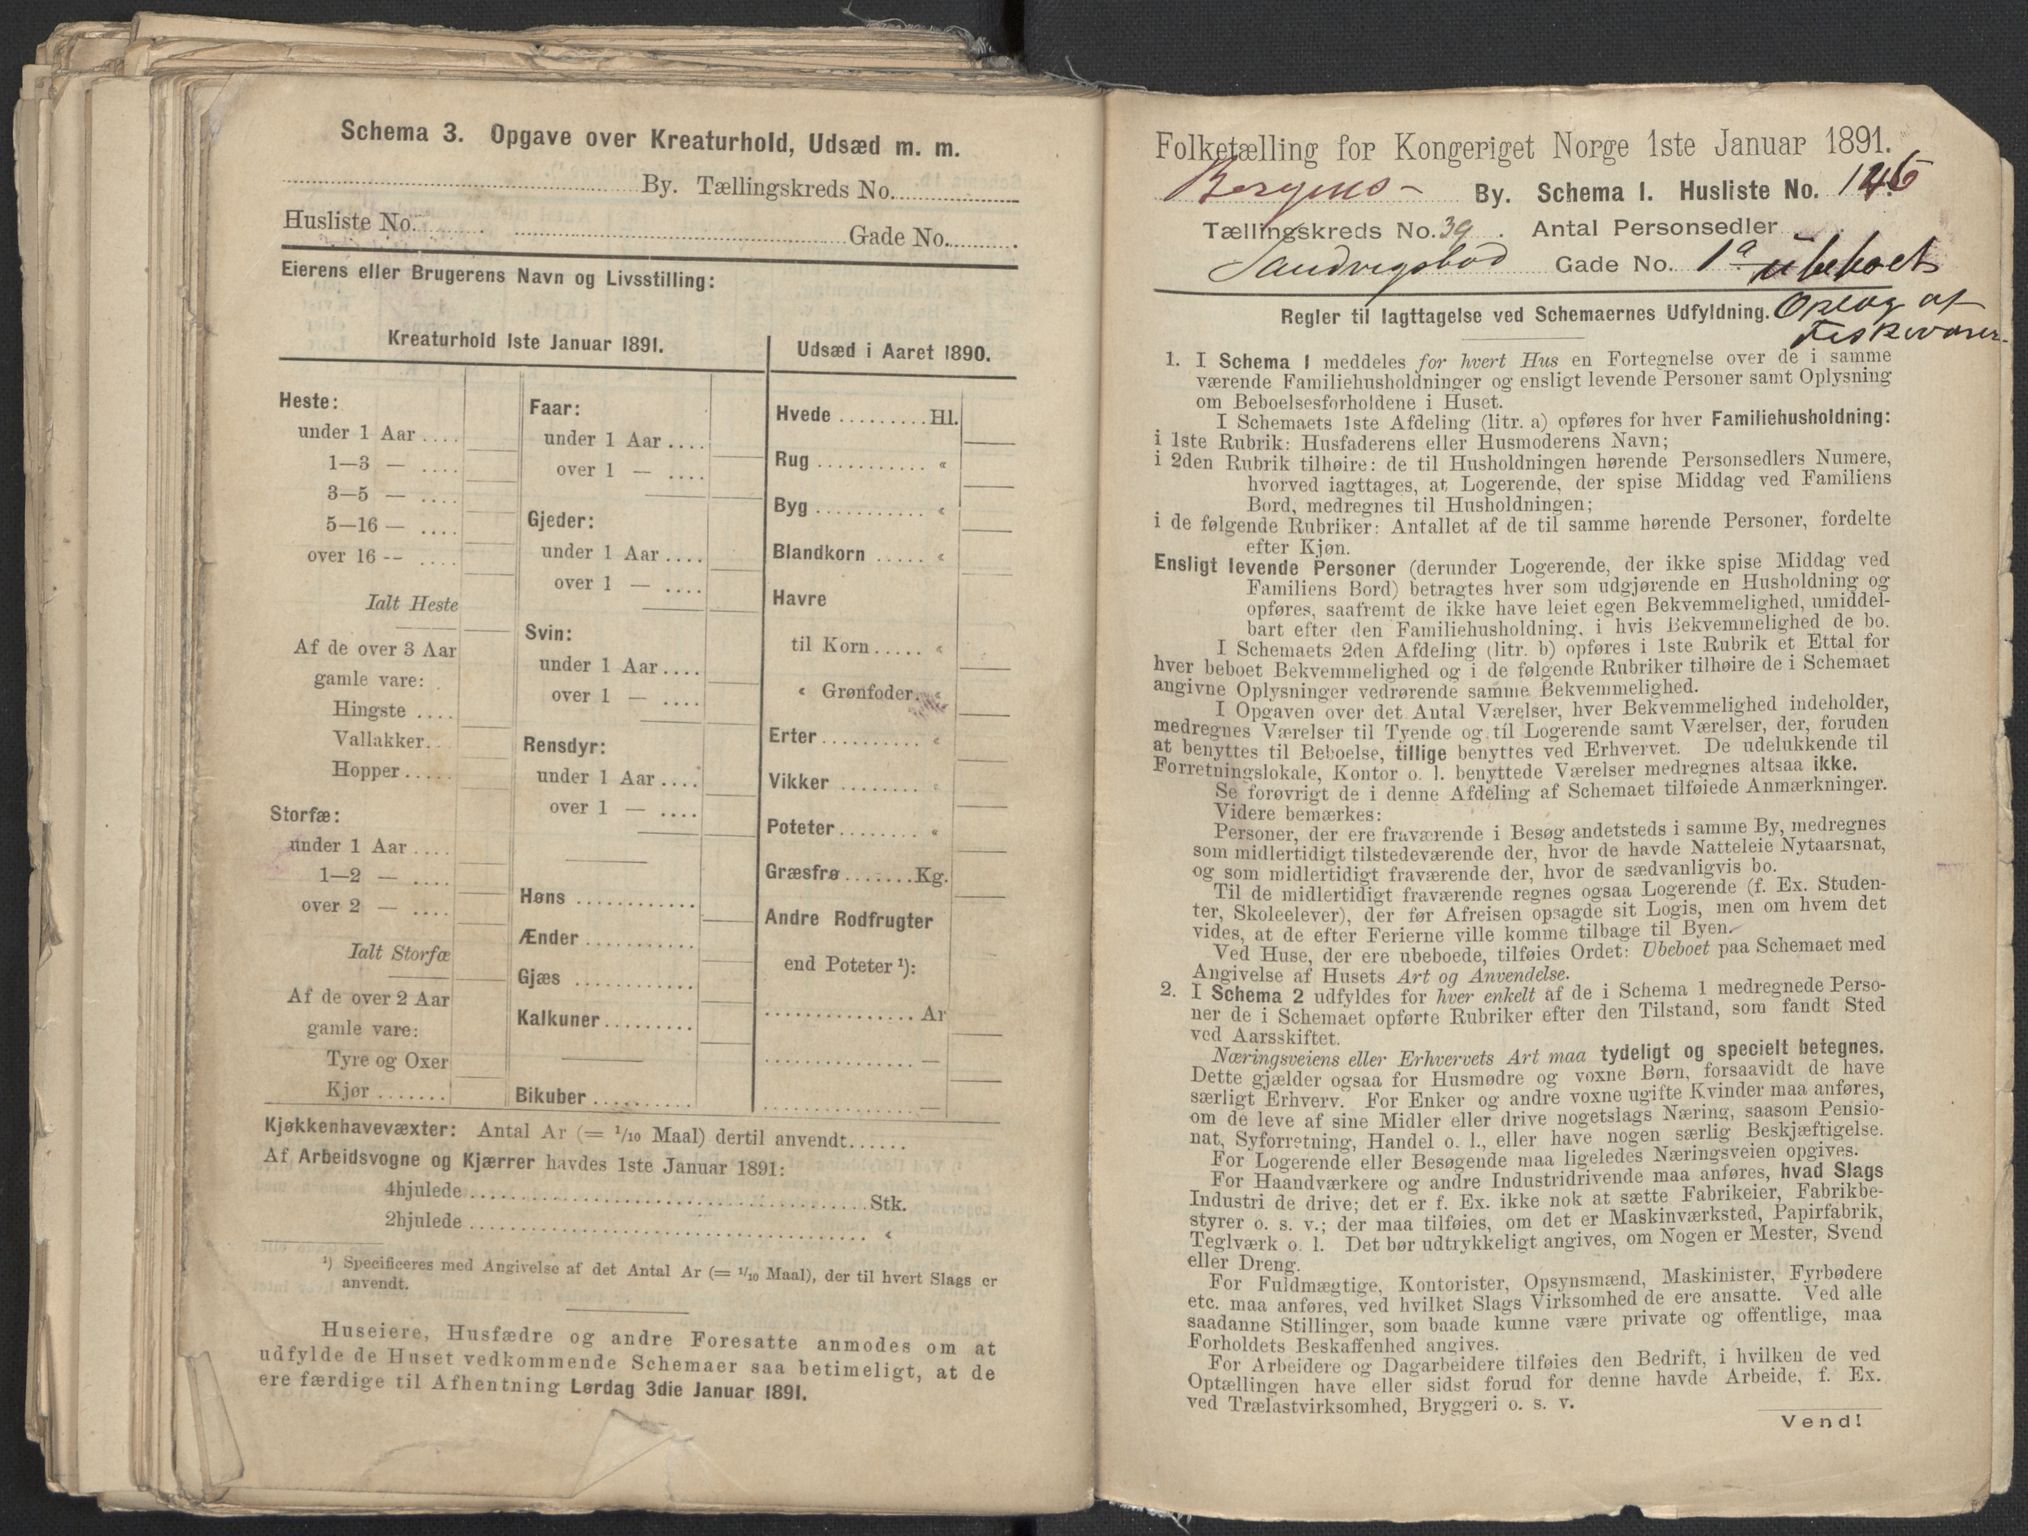 Schema 3. Opgave over Kreaturhold, Udsæd m. m.
By. Tællingskreds No.
Husliste No. Gade No.
Eierens eller Brugerens Navn og Livsstilling:
Kreaturhold 1ste Januar 1891.
Heste:
under 1 Aar
1—3 —
3—5 —
5—16 —
over 16 --
Ialt Heste
Af de over 3 Aar
gamle vare:
Hingste
Vallakker
Hopper
Storfæ:
under 1 Aar
1—2 —
over 2 —
Ialt Storfæ
Af de over 2 Aar
gamle vare:
Tyre og Oxer
Kjør
Faar:
under 1 Aar
over 1 —
Gjeder:
under 1 Aar
over 1 —
Svin:
under 1 Aar
over 1 —
Rensdyr:
under 1 Aar
over 1 —
Høns
Ænder
Gjæs
Kalkuner
Bikuber
Udsæd i Aaret 1890.
Hvede Hl.
Rug «
Byg «
Blandkorn «
Havre
til Korn «
« Grønfoder «
Erter «
Vikker «
Poteter «
Græsfrø Kg.
Andre Rodfrugter
end Poteter ¹):
Ar
—
—
Kjøkkenhavevæxter: Antal Ar (= 1/10 Maal) dertil anvendt
Af Arbeidsvogne og Kjærrer havdes 1ste Januar 1891:
4hjulede Stk.
2hjulede «
¹) Specificeres med Angivelse af det Antal Ar (= 1/10 Maal), der til hvert Slags er
anvendt.
Huseiere, Husfædre og andre Foresatte anmodes om at
udfylde de Huset vedkommende Schemaer saa betimeligt, at de
ere færdige til Afhentning Lørdag 3die Januar 1891.
Folketælling for Kongeriget Norge 1ste Januar 1891.
Bergens By. Schema I. Husliste No.
Tællingskreds No. 39. Antal Personsedler
Sandvigsbod Gade No. 1a ubeboet
Regler til Iagttagelse ved Schemaernes Udfyldning. Oplag af
Fiskevarer
1. I Schema 1 meddeles for hvert Hus en Fortegnelse over de i samme
værende Familiehusholdninger og ensligt levende Personer samt Oplysning
om Beboelsesforholdene i Huset.
I Schemaets 1ste Afdeling (litr. a) opføres for hver Familiehusholdning:
i 1ste Rubrik: Husfaderens eller Husmoderens Navn;
i 2den Rubrik tilhøire: de til Husholdningen hørende Personsedlers Numere,
hvorved iagttages, at Logerende, der spise Middag ved Familiens
Bord, medregnes til Husholdningen;
i de følgende Rubriker: Antallet af de til samme hørende Personer, fordelte
efter Kjøn.
Ensligt levende Personer (derunder Logerende, der ikke spise Middag ved
Familiens Bord) betragtes hver som udgjørende en Husholdning og
opføres, saafremt de ikke have leiet egen Bekvemmelighed, umiddel-
bart efter den Familiehusholdning, i hvis Bekvemmelighed de bo.
I Schemaets 2den Afdeling (litr. b) opføres i 1ste Rubrik et Ettal for
hver beboet Bekvemmelighed og i de følgende Rubriker tilhøire de i Schemaet
angivne Oplysninger vedrørende samme Bekvemmelighed.
I Opgaven over det Antal Værelser, hver Bekvemmelighed indeholder,
medregnes Værelser til Tyende og til Logerende samt Værelser, der, foruden
at benyttes til Beboelse, tillige benyttes ved Erhvervet. De udelukkende til
Forretningslokale, Kontor o. l. benyttede Værelser medregnes altsaa ikke.
Se forøvrigt de i denne Afdeling af Schemaet tilføiede Anmærkninger.
Videre bemærkes:
Personer, der ere fraværende i Besøg andetsteds i samme By, medregnes
som midlertidigt tilstedeværende der, hvor de havde Natteleie Nytaarsnat,
og som midlertidigt fraværende der, hvor de sædvanligvis bo.
Til de midlertidigt fraværende regnes ogsaa Logerende (f. Ex. Studen-
ter, Skoleelever), der før Afreisen opsagde sit Logis, men om hvem det
vides, at de efter Ferierne ville komme tilbage til Byen.
Ved Huse, der ere ubeboede, tilføies Ordet: Ubeboet paa Schemaet med
Angivelse af Husets Art og Anvendelse.
2. I Schema 2 udfyldes for hver enkelt af de i Schema 1 medregnede Perso-
ner de i Schemaet opførte Rubriker efter den Tilstand, som fandt Sted
ved Aarsskiftet.
Næringsveiens eller Erhvervets Art maa tydeligt og specielt betegnes.
Dette gjælder ogsaa for Husmødre og voxne Børn, forsaavidt de have
særligt Erhverv. For Enker og andre voxne ugifte Kvinder maa anføres,
om de leve af sine Midler eller drive nogetslags Næring, saasom Pensio-
nat, Syforretning, Handel o. l., eller have nogen særlig Beskjæftigelse.
For Logerende eller Besøgende maa ligeledes Næringsveien opgives.
For Haandværkere og andre Industridrivende maa anføres, hvad Slags
Industri de drive; det er f. Ex. ikke nok at sætte Fabrikeier, Fabrikbe-
styrer o. s. v.; der maa tilføies, om det er Maskinværksted, Papirfabrik,
Teglværk o. l. Det bør udtrykkeligt angives, om Nogen er Mester, Svend
eller Dreng.
For Fuldmægtige, Kontorister, Opsynsmænd, Maskinister, Fyrbødere
etc. maa anføres, ved hvilket Slags Virksomhed de ere ansatte. Ved alle
saadanne Stillinger, som baade kunne være private og offentlige, maa
Forholdets Beskaffenhed angives.
For Arbeidere og Dagarbeidere tilføies den Bedrift, i hvilken de ved
Optællingen have eller sidst forud for denne havde Arbeide, f. Ex.
ved Trælastvirksomhed, Bryggeri o. s. v.
Vend!